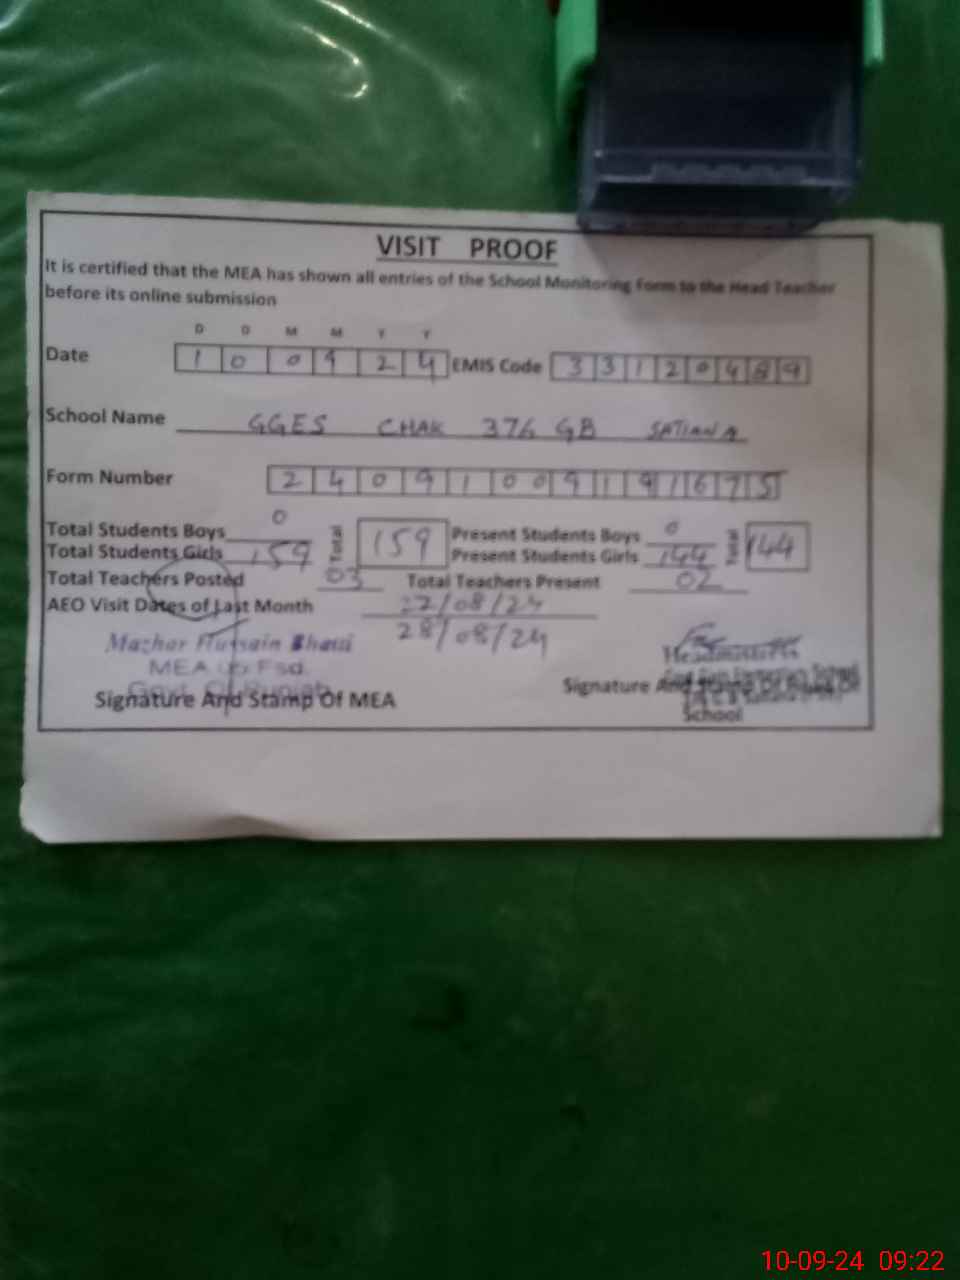 VISIT PROOF
It is certified that the MEA has shown all entries of the School Monitoring Form to the Head Teacher
before its online submission
D D M M Y Y
Date 1 0 0 9 2 4 EMIS Code 3 3 1 2 0 4 8 9
School Name GGES CHAK 376 GB SATIANA
Form Number 2 4 0 9 1 0 0 9 1 9 1 6 7 5
Total Students Boys 0 Total 159 Present Students Boys 0 Total 144
Total Students Girls 159 Present Students Girls 144
Total Teachers Posted 03 Total Teachers Present 02
AEO Visit Dates of Last Month 22/08/24
28/08/24
Mazhar Hussain Bhatti
MEA Fsd.
Signature And Stamp Of MEA
Headmistress
Signature And Stamp Of Head Of
School
10-09-24 09:22